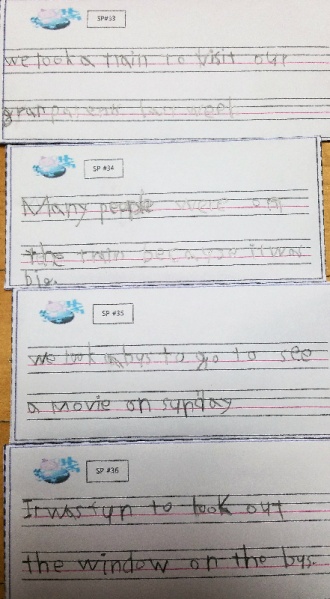 SP#33
we took a train to visit our
SP #34
Many people were on
the train because it was
big.
SP #35
we took a bus to go to see
a movie on sunday
SP #36
It was fun to look out
the window on the bus.